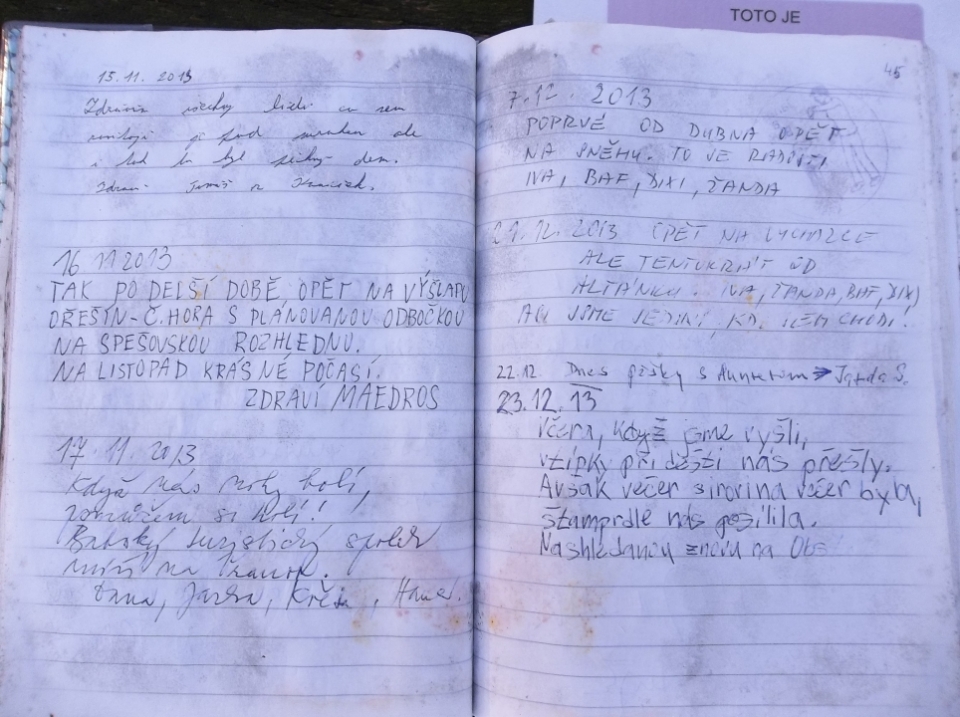 TOTO JE
15.11. 2013
Zdravím všechny
ale
i tak to byl den.
Zdraví Tomáš
16 11 2013
TAK PO DELŠÍ DOBĚ OPĚT NA VÝŠLAPU
OŘEŠÍN-Č.HORA S PLÁNOVANOU ODBOČKOU
NA SPEŠOVSKOU ROZHLEDNU.
NA LISTOPAD KRÁSNÉ POČASÍ.
ZDRAVÍ MAEDROS
17. 11. 2013
Když nás nohy bolí,
pomůžem si holí!
Babský turistický spolek
míří na
Dana, Jarka,
45
7.12. 2013
POPRVÉ OD DUBNA OPĚT
NA SNĚHU. TO JE RADOSTI
IVA, BAF, DIXI, ŽANDA
21.12.2013 OPĚT NA VYCHÁZCE
ALE TENTOKRÁT OD
ALTÁNKU. IVA, ŽANDA, BAF, DIXI
JSME JEDINÍ, KD. SEM CHODÍ!
22.12. Dnes pěšky s Hunterem → Jarda S.
23.12.13
Včera, když jsme vyšli,
vtípky při dešti nás přešly.
Avšak večer sirovina večer byla,
štamprdle nás posilila.
Nashledanou znovu na